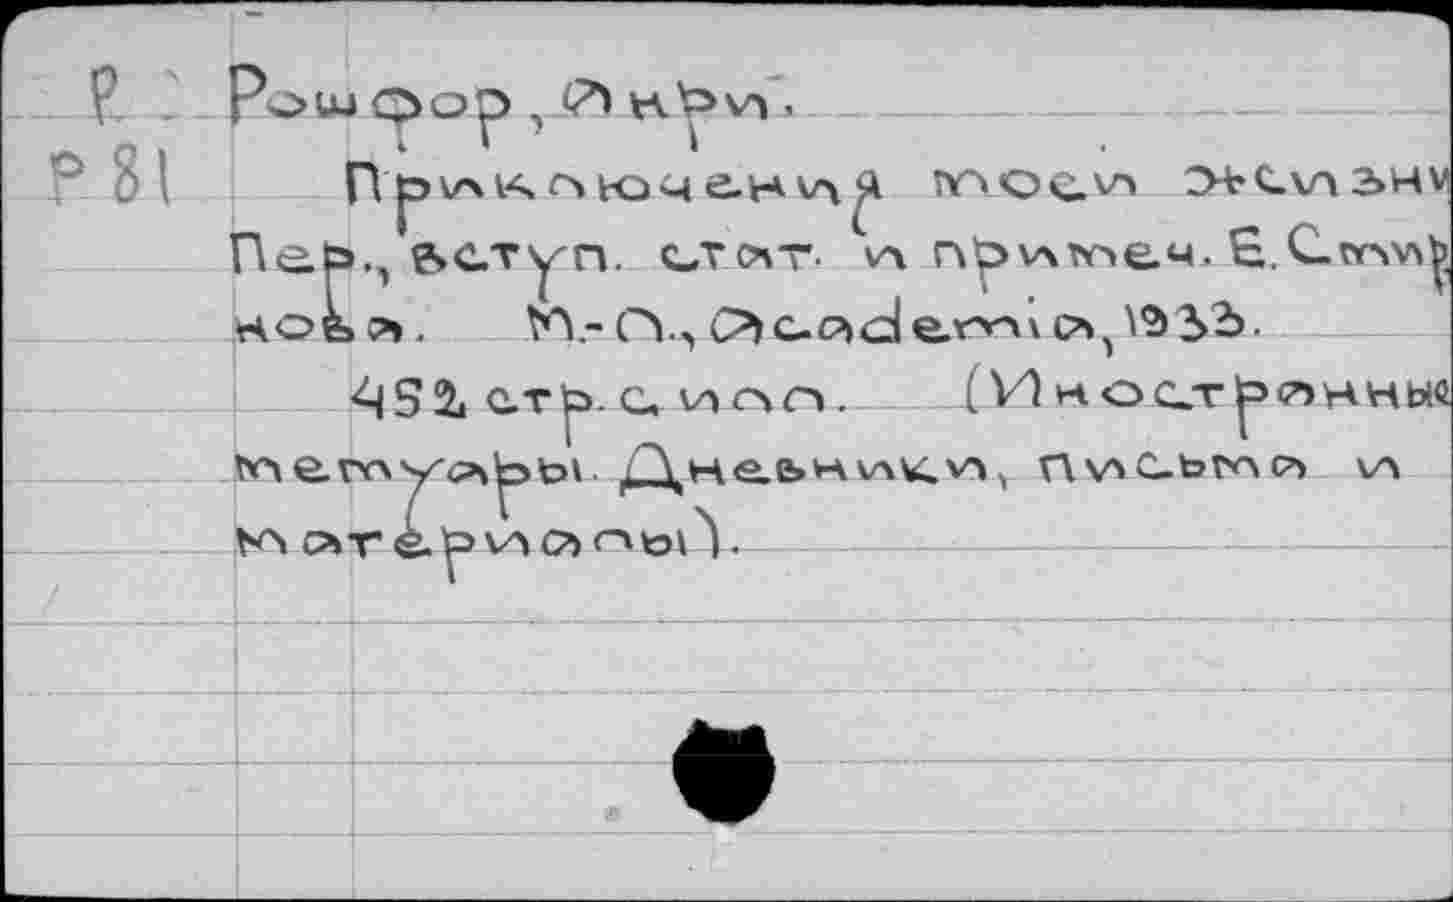 Р
Рошфор, Анри.
Р81
Приключения моей жизни
Пер., вступ. стат. и примеч. Е. Смир
нова. М.-Л., Academia, 1933.
452 стр. с илл. (Иностранные
мемуары. Дневники, письма и
материалы).